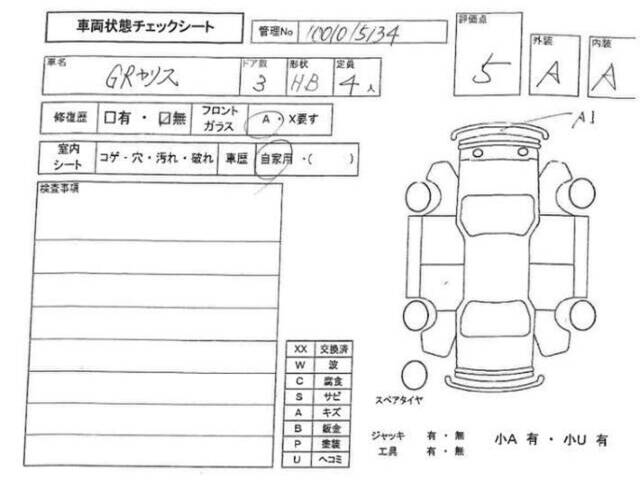 車両状態チェックシート
管理No 1001015134
評価点 5
外装 A
内装 A
車名 GRヤリス
ドア数 3
形状 HB
定員 4人
修復歴 口有・☑無
フロントガラス A・X要す
室内シート コゲ・穴・汚れ・破れ
車歴 自家用・( )
検査事項
A1
XX 交換済
W 波
C 腐食
S サビ
A キズ
B 鈑金
P 塗装
U ヘコミ
スペアタイヤ
ジャッキ 有・無
工具 有・無
小A 有・小U 有